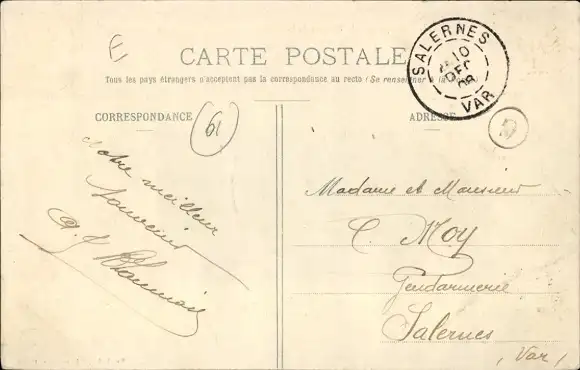 E
CARTE POSTALE
Tous les pays étrangers n'acceptent pas la correspondance au recto (Se renseigner à la Poste)
SALERNES
10
DEC
08
VAR
CORRESPONDANCE
61
ADRESSE
Notre meilleur
souvenir
Madame et Monsieur
C. Moy
Gendarmerie
Salernes
(Var)